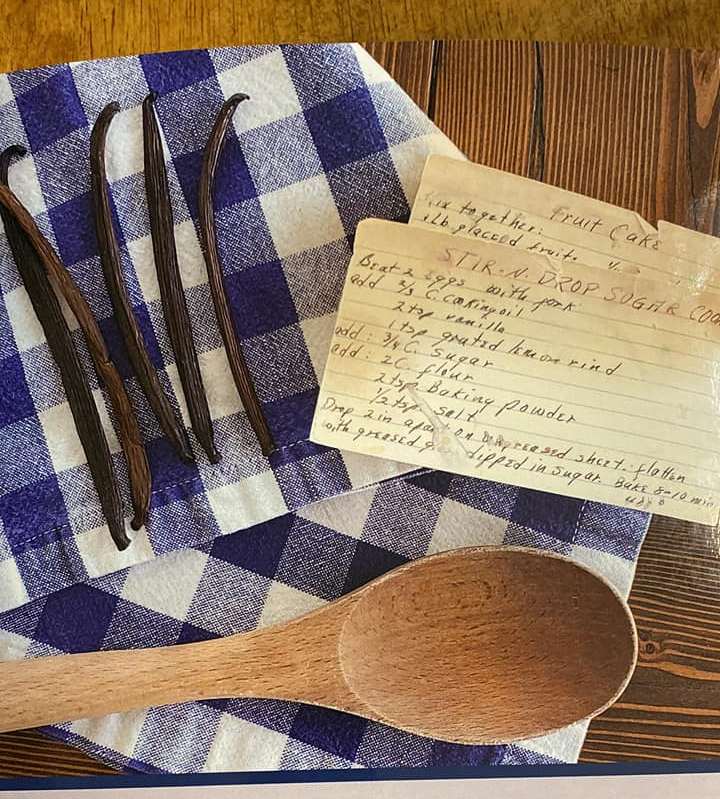 Fruit Cake
Mix together:
1 Lb. glacced fruit.
STIR-N-DROP SUGAR COO
Beat 2 eggs with fork
add 2/3 C. cooking oil
2 tsp vanilla
1 tsp grated lemon rind
add: 3/4 C. sugar
add: 2 C. flour
2 tsp Baking powder
1/2 tsp salt
Drop 2 in apart on ungreased sheet. flatten
with greased dipped in sugar. Bake 8-10 min